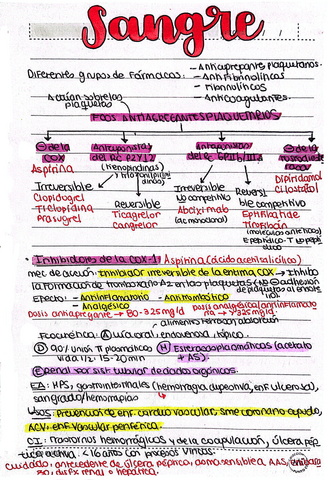 Sangre
Diferentes grupos de fármacos:
- Antiagregantes plaquetarios.
- Antifibrinolíticos
- Fibrinolíticos
- Anticoagulantes.
Actúan sobre las plaquetas
FCOS ANTIAGREGANTES PLAQUETARIOS
⊖ de la COX
Antagonistas del Rc P2Y12
Antagonistas del Rc GPIIb/IIIa
⊖ de la
Aspirina
(tienopiridinas)
Dipiridamol
Cilostazol
Irreversible
Clopidogrel
Ticlopidina
Prasugrel
Reversible
Ticagrelor
cangrelor
Irreversible
No competitivo
Abciximab
(ac monoclonal)
Reversible competitivo
Eptifibatide
Tirofiban
• Inhibidores de la COX-1: Aspirina (ácido acetilsalicílico)
mec de acción: Inhibidor irreversible de la enzima COX → inhibe
la formación de tromboxano A2 en las plaquetas (NO ⊖ adhesión
de plaquetas al
Efecto: - Antiinflamatorio - Antitrombótico
- Analgésico
dosis antiagregante → 80-325mg/d
alimentos retrasan absorción
Fcocinética: Ⓐ vía oral, endovenosa, tópica.
Ⓓ 90% unión Ti plasmáticas Ⓗ Esterasas plasmáticas (acetato
vida 1/2: 15-20min + AS).
Ⓔ renal por sist tubular de ácidos orgánicos.
EA: HPS, gastrointestinales (hemorragia digestiva, enf ulcerosa),
sangrado/hemorragias
Usos: Prevención de enf. cardio vasculares, sme coronario agudo,
ACV, enf vascular periférica.
CI: trastornos hemorrágicos y de la coagulación, úlcera pép-
tica activa. < 16 años con procesos virales.
cuidado: antecedente de úlcera péptica, asma sensible a AAS,
disfx renal o hepática.